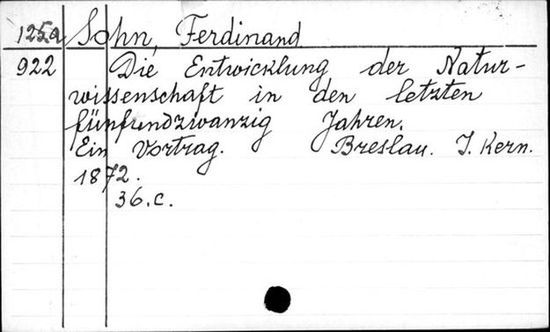 125a Sohn, Ferdinand
922 Die Entwicklung der Natur-
wissenschaft in den letzten
fünfundzwanzig Jahren.
Ein Vortrag. Breslau. J. Kern.
1872.
36.c.